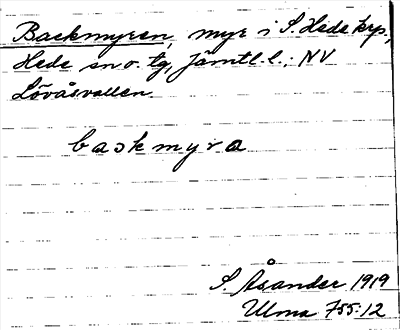 Backmyren, myr i S. Hede krp,
Hede sn o. tg, Jämtl. l.; NV
Lövåsvallen.
backmyra
S. Åsander 1919
Ulma 755:12